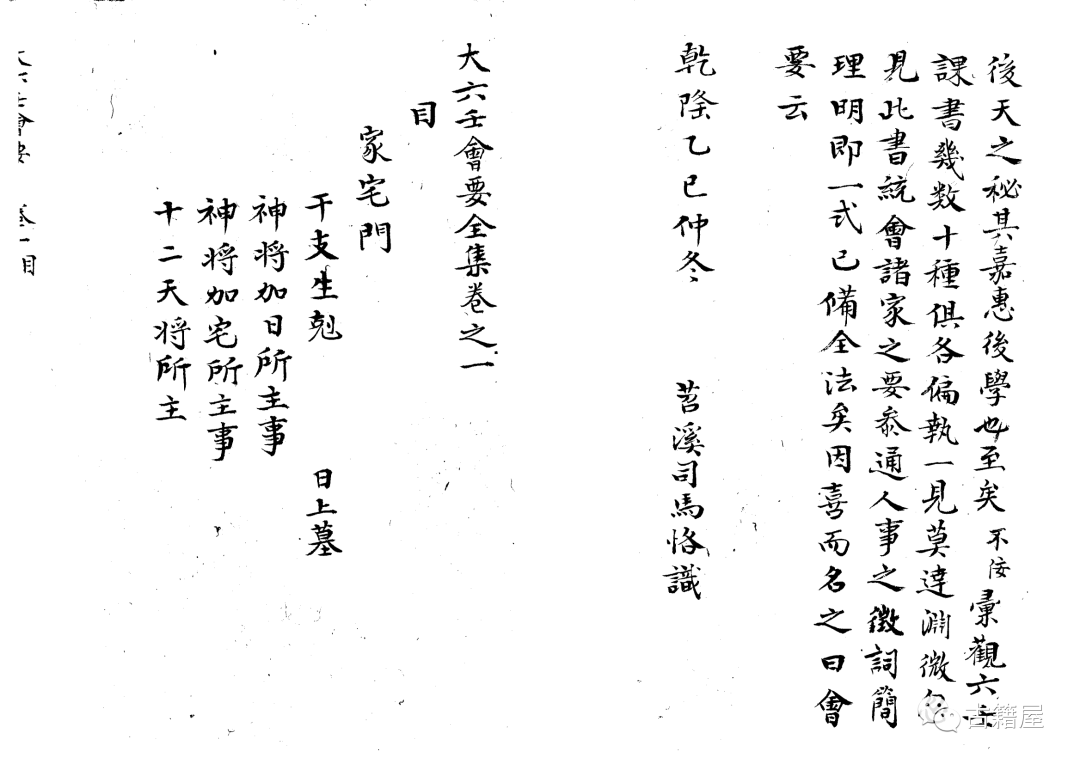 後天之秘其嘉惠後學也至矣不佞彙觀六壬
課書幾数十種俱各偏執一見莫達淵微
見此書統會諸家之要叅通人事之徵詞簡
理明即一式已備全法矣因喜而名之曰會
要云
乾隆乙巳仲冬 苕溪司馬恪識
大六壬會要全集卷之一
目
家宅門
干支生尅 日上墓
神將加日所主事
神將加宅所主事
十二天將所主
大六壬會要 卷一目
古籍屋